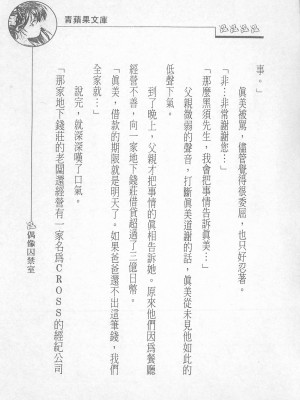 青蘋果文庫
事。」
真美被罵，儘管覺得很委屈，也只好忍著。
「非…非常謝謝您…」
「那麼黑須先生，我會把事情告訴真美…」
父親微弱的聲音，打斷真美道謝的話，真美從未見他如此的
低聲下氣。
到了晚上，父親才把事情的真相告訴她。原來他們因為餐廳
經營不善，向一家地下錢莊借貸超過了三億日幣。
「真美，借款的期限就是明天了。如果爸爸還不出這筆錢，我們
全家就…」
說完，就深深嘆了口氣。
「那家地下錢莊的老闆還經營有一家名為CROSS的經紀公司
偶像囚禁室